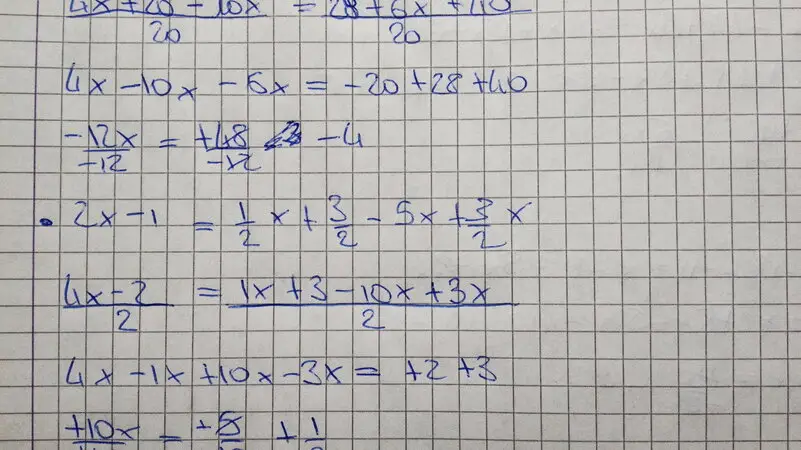 4x+20-10x/20 = 28+6x+40/20
4x -10x -6x = -20+28+40
-12x/-12 = +48/-12 -4
• 2x-1 = 1/2 x + 3/2 - 5x + 3/2 x
4x-2/2 = 1x+3-10x+3x/2
4x -1x +10x -3x = +2 +3
+10x = +5 +1